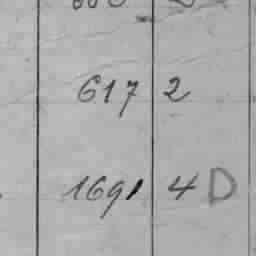 617 2
1691 4 D